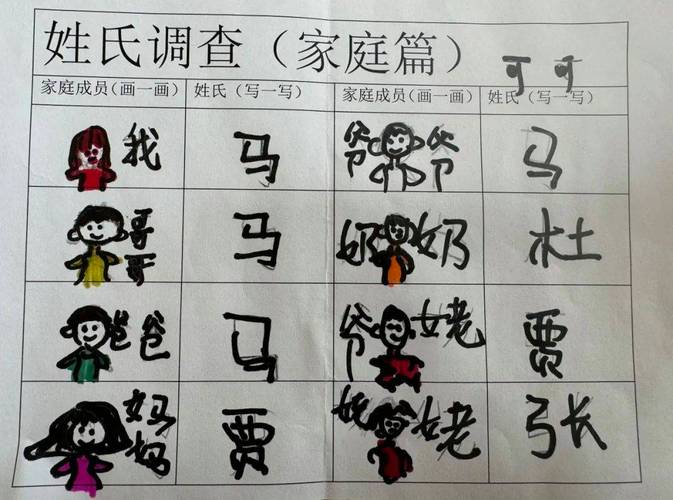 姓氏调查（家庭篇） 可可
家庭成员(画一画) 姓氏（写一写） 家庭成员(画一画) 姓氏（写一写）
我 马 爷爷 马
哥哥 马 奶奶 杜
爸爸 马 爷姥 贾
妈妈 贾 姥姥 张